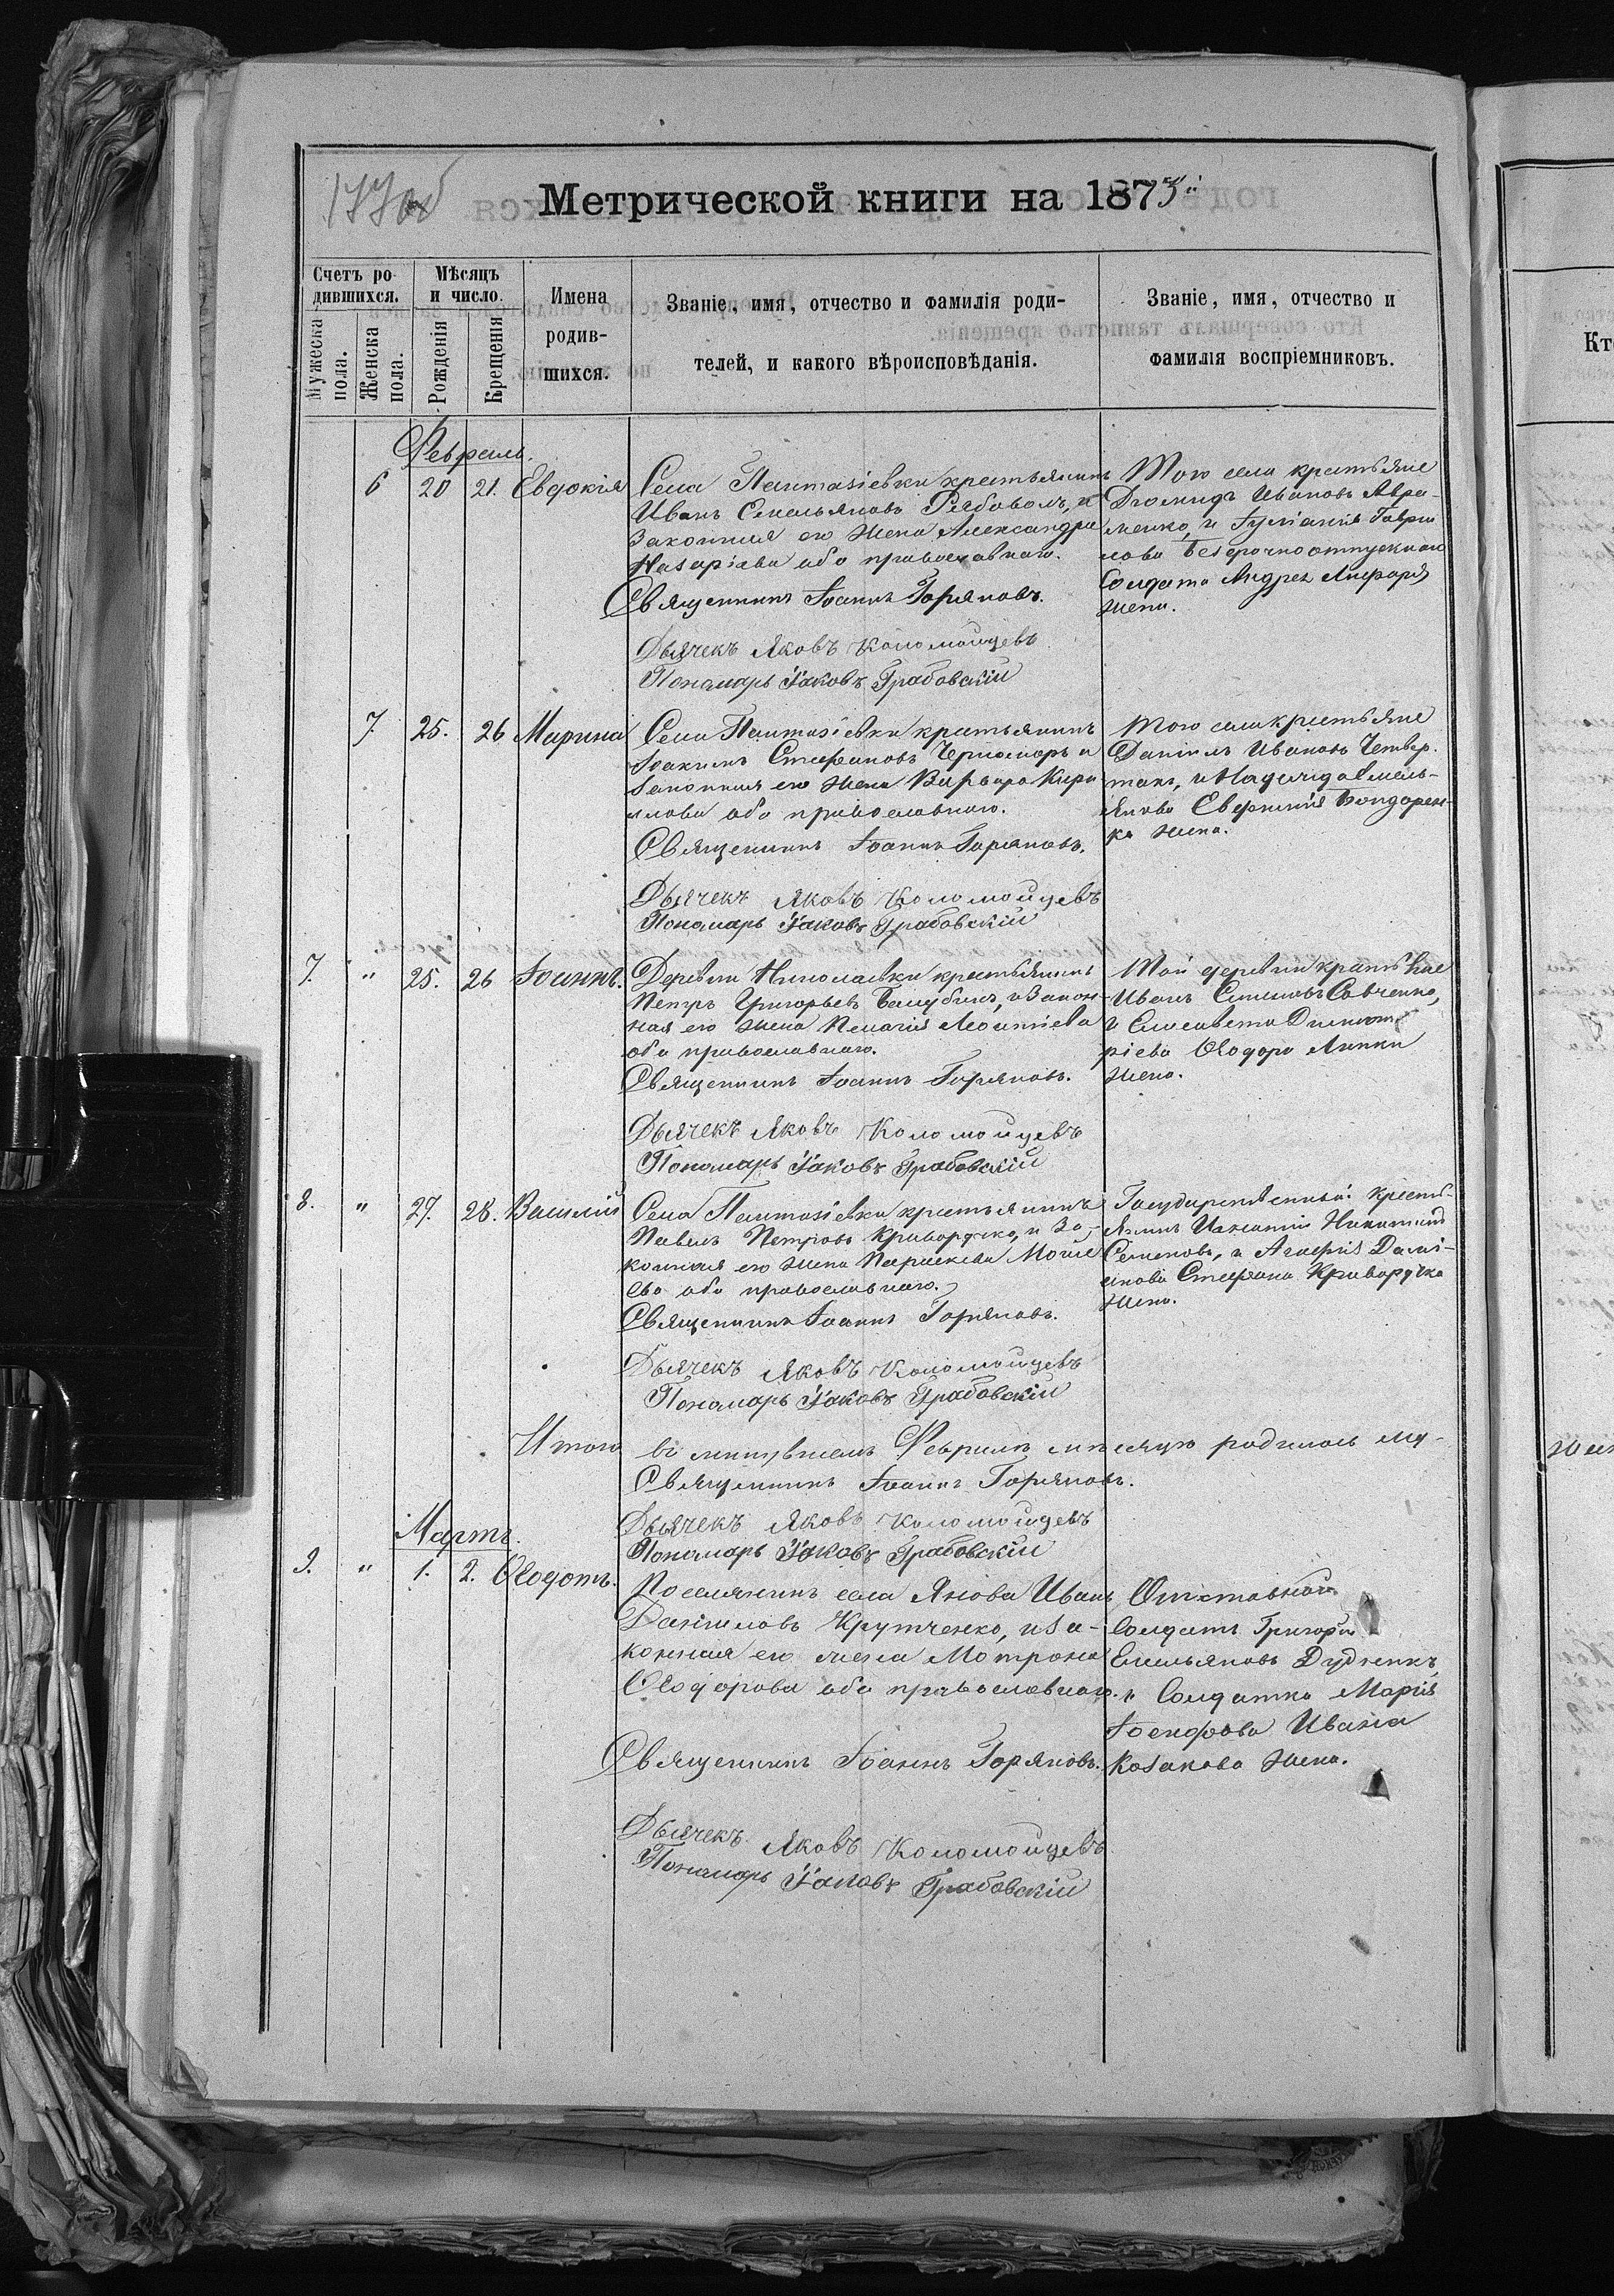 177об
Метрической книги на 1875й
Счетъ ро-
дившихся.
Мѣсяцъ
и число.
Имена
родив-
шихся.
Званіе, имя, отчество и фамилія роди-
телей, и какого вѣроисповѣданія.
Званіе, имя, отчество и
фамилія воспріемниковъ.
Мужеска
пола.
Женска
пола.
Рожденія
Крещенія
Февраль.
6 20 21. Евдокія
Села Пантазіевки крестьянинъ
Иванъ Емельяновъ Рябоволъ, и
законная его жена Александра
Назаріева оба православнаго.
Священникъ Іоаннъ Горяновъ.
Дьячекъ Яковъ Коломойцевъ
Пономарь Іаковъ Грабовскій
Того села крестьяне
Діомидъ Ивановъ Авра-
менко, и Іуліанія Гаври
лова безсрочноотпускнаго
Солдата Андрея
жена.
7. 25. 26 Марина
Села Пантазіевки крестьянинъ
Іоакимъ Стефановъ Черноморъ и
законная его жена Варвара Кири
лова оба православнаго.
Священникъ Іоаннъ Горяновъ.
Дьячекъ Яковъ Коломойцевъ
Пономарь Іаковъ Грабовскій
Того села крестьяне
Даніилъ Ивановъ Четвер-
такъ, и Надежда Емель-
янова Евфимія Бондарен-
ка жена.
7. " 25. 26 Іоаннъ.
Деревни Николаевки крестьянинъ
Петръ Григорьевъ и закон-
ная его жена Пелагія Леонтіева
оба православнаго.
Священникъ Іоаннъ Горяновъ.
Дьячекъ Яковъ Коломойцевъ
Пономарь Іаковъ Грабовскій
Той деревни крестьяне
Иванъ Савченко,
и Елисавета Димит
ріева Ѳеодора Липки
жена.
8. " 27. 28. Василій
Села Пантазіевки крестьянинъ
Павелъ Петровъ Криворучко, и за-
конная его жена Параскева Моисе
ева оба православнаго.
Священникъ Іоаннъ Горяновъ.
Дьячекъ Яковъ Коломойцевъ
Пономарь Іаковъ Грабовскій
Государственный крестъ-
янинъ Игнатій
Семеновъ, и Агафія Дамі-
анова Стефана Криворучка
жена.
Итого въ минувшемъ Февралѣ мѣсяцѣ родилось му-
Священникъ Іоаннъ Горяновъ.
Дьячекъ Яковъ Коломойцевъ
Пономарь Іаковъ Грабовскій
Мартъ.
9. " 1. 2. Ѳеодотъ.
Поселянинъ села Янова Иванъ
Даніиловъ Крутченко, и за-
конная его жена Матрона
Ѳеодорова оба православнаго.
Священникъ Іоаннъ Горяновъ.
Дьячекъ Яковъ Коломойцевъ
Пономарь Іаковъ Грабовскій
Отставной
Солдатъ Григорій
Емельяновъ Дудченкъ,
и Солдатка Марія
Іосифова Ивана
Козакова жена.